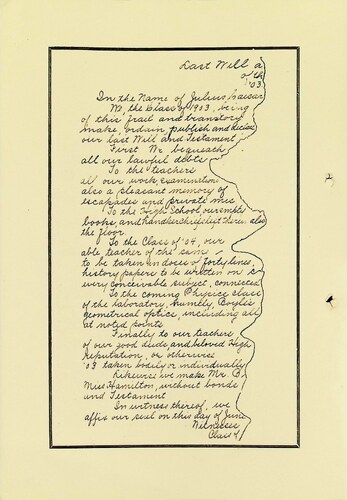 Last Will a
of th
'03
In the Name of Julius Caesar
We, the Class of 1903, being
of this frail and transtory
make, ordain, publish and declare
our last Will and Testament
First We bequeath
all our lawful debts
To the teachers
all our work examination
also a pleasant memory of
escapades and private mus
To the High School, our empty
books, and handkerchiefs left there also
the floor
To the Class of '04, our
able teacher of the same
to be taken in doses of forty lines
history papers to be written on
very conceivable subject, connected
To the coming Physics class
of the laboratory, humbly
geometrical optics, including all
at noted points
Finally to our teachers
of our good dude, and beloved High
reputation, or otherwise
'03 taken bodily or individually
Likewise we make Mr. C
Miss Hamilton, without bonds
and Testament
In witness thereof, we
affix our seal on this day of June
Witnesses
Class